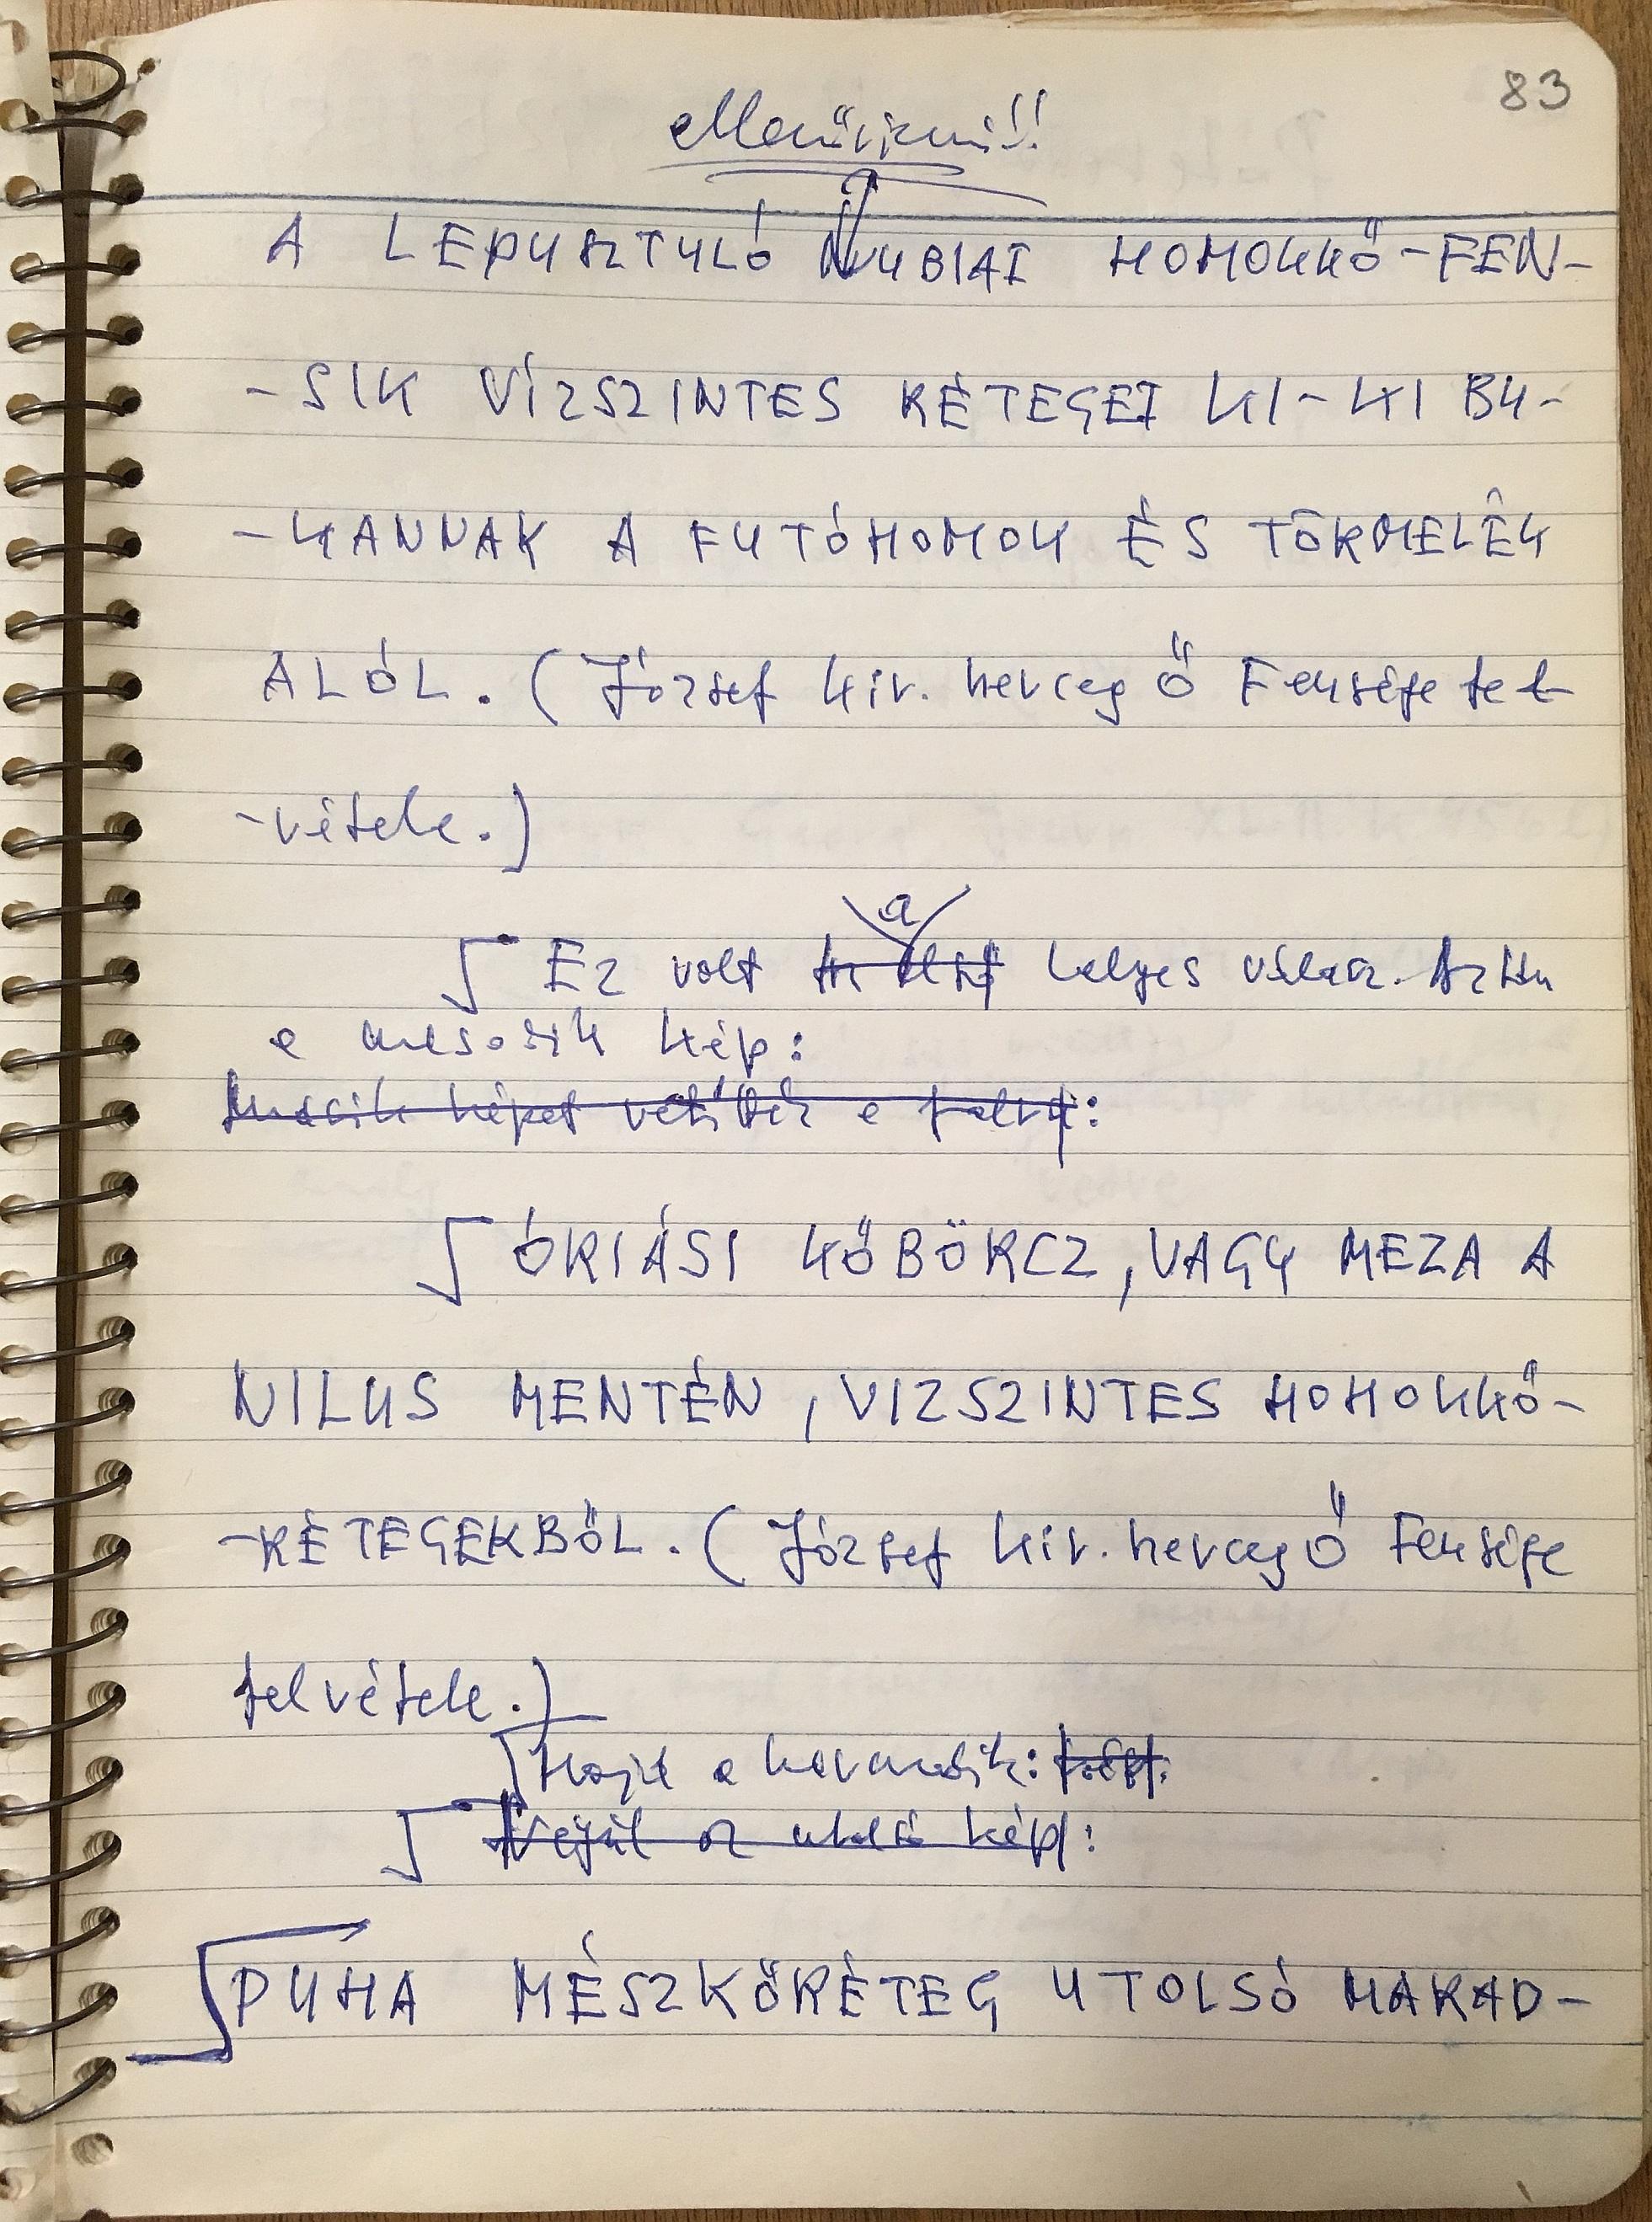 83
A LEPUSZTULÓ NUBIAI HOMOKKŐ-FEN-
-SIK VÍZSZINTES RÉTEGEI KI-KI BU-
-KANNAK A FUTÓHOMOK ÉS TÖRMELÉK
ALÓL. (József kir. herceg Ő Fensége fel-
-vétele.)
Ez volt a helyes válasz. Aztán
a második kép:
képet a falra:
ÓRIÁSI KŐBÖRCZ, VAGY MEZA A
NILUS MENTÉN, VIZSZINTES HOMOKKŐ-
-RÉTEGEKBŐL. (József kir. herceg Ő Fensége
felvétele.)
Majd a harmadik:
Végül az utolsó kép:
PUHA MÉSZKŐRÉTEG UTOLSÓ MARAD-